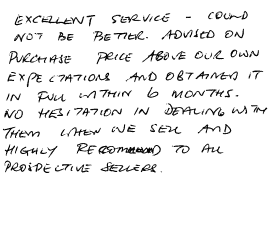 EXCELLENT SERVICE - COULD
NOT BE BETTER. ADVISED ON
PURCHASE PRICE ABOVE OUR OWN
EXPECTATIONS AND OBTAINED IT
IN FULL WITHIN 6 MONTHS.
NO HESITATION IN DEALING WITH
THEM WHEN WE SELL AND
HIGHLY RECOMMEND TO ALL
PROSPECTIVE SELLERS.